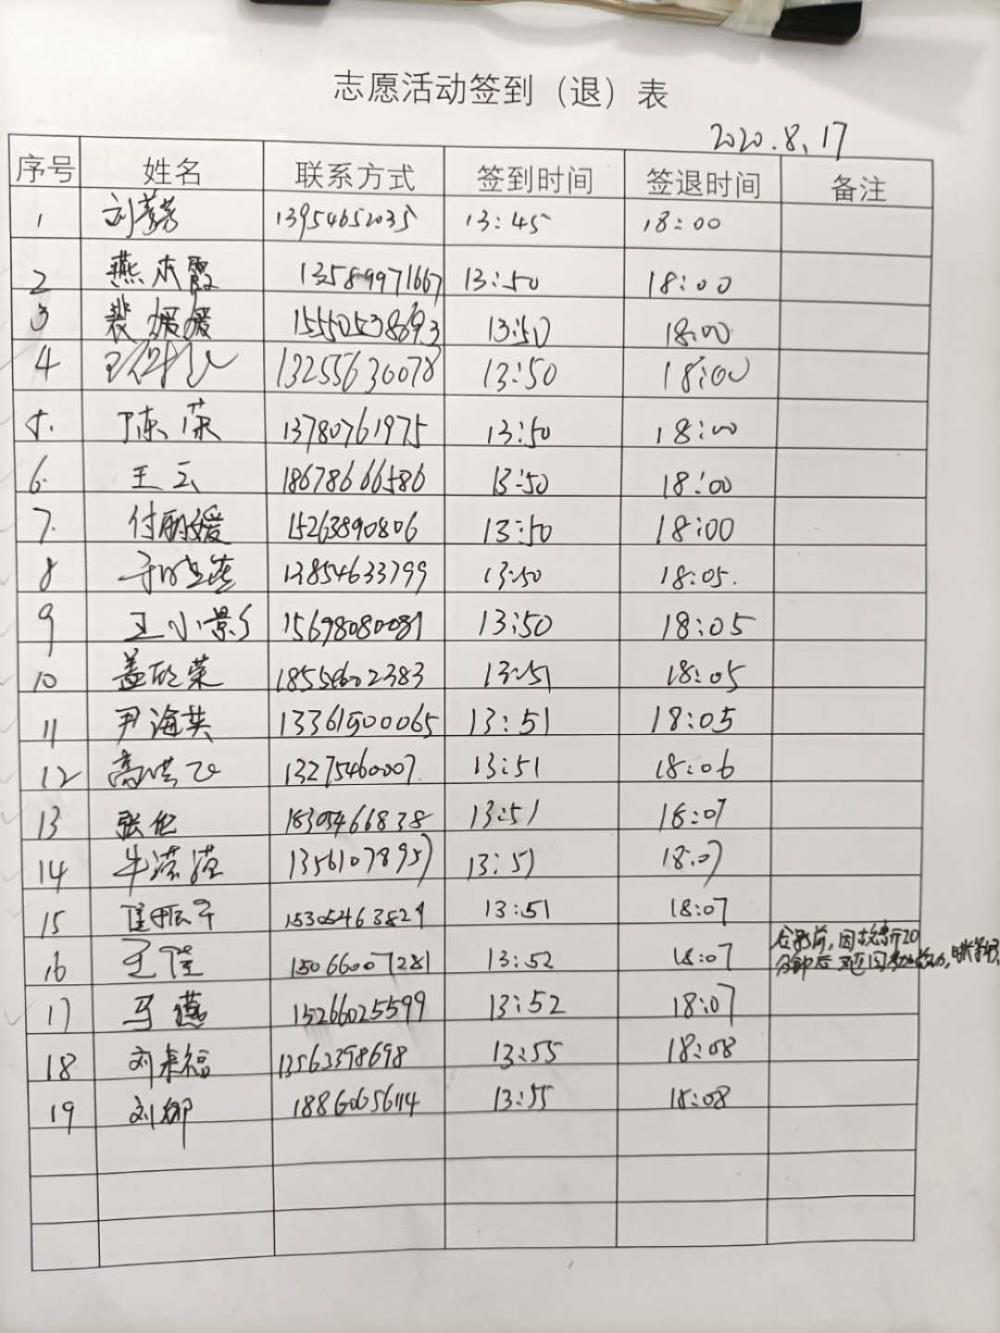 志愿活动签到（退）表
2020.8.17
序号 姓名 联系方式 签到时间 签退时间 备注
1 刘 13954652035 13:45 18:00
2 燕本霞 13589971667 13:50 18:00
3 裴媛媛 15550538693 13:50 18:00
4 13255630078 13:50 18:00
5. 陈荣 13780761975 13:50 18:00
6. 王云 18678666586 13:50 18:00
7. 付丽媛 15263890806 13:50 18:00
8 于晓燕 13854633799 13:50 18:05.
9 王小影 15698080081 13:50 18:05
10 盖欣荣 18554602383 13:51 18:05
11 尹海英 13361500065 13:51 18:05
12 高洪飞 13275460007. 13:51 18:06
13 张伦 18305466838 13:51 18:07
14 牛滢滢 13561078957 13:51 18:07
15 15305463829 13:51 18:07
16 王 15066007281 13:52 18:07
17 马燕 15266025599 13:52 18:07
18 刘来福 13562398698 13:55 18:08
19 刘娜 18860656114 13:55 18:08